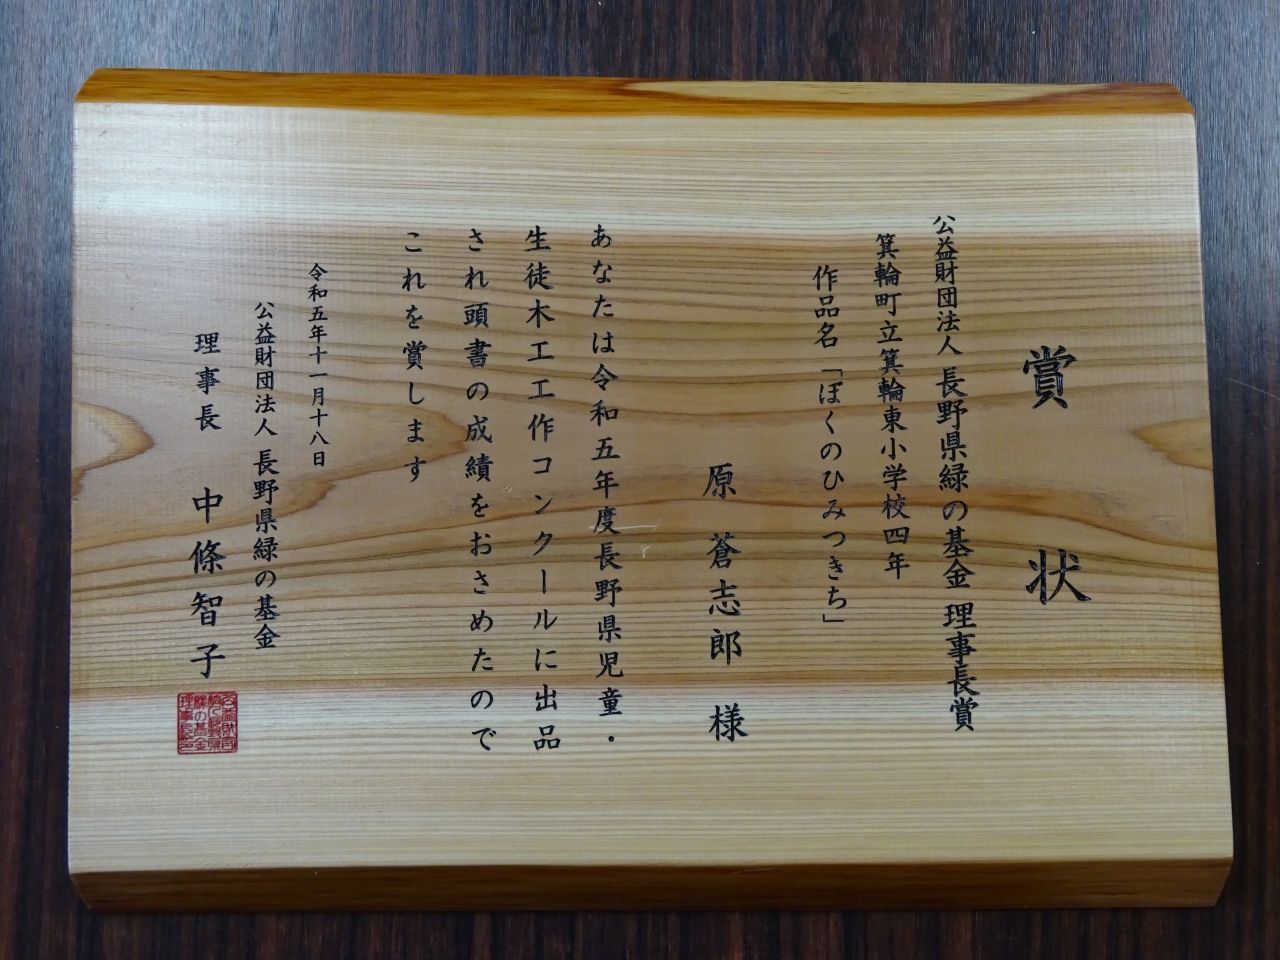 賞状
公益財団法人 長野県緑の基金 理事長賞
箕輪町立箕輪東小学校四年
作品名「ぼくのひみつきち」
原 蒼志郎 様
あなたは令和五年度長野県児童・
生徒木工工作コンクールに出品
され頭書の成績をおさめたので
これを賞します
令和五年十一月十八日
公益財団法人 長野県緑の基金
理事長 中條智子